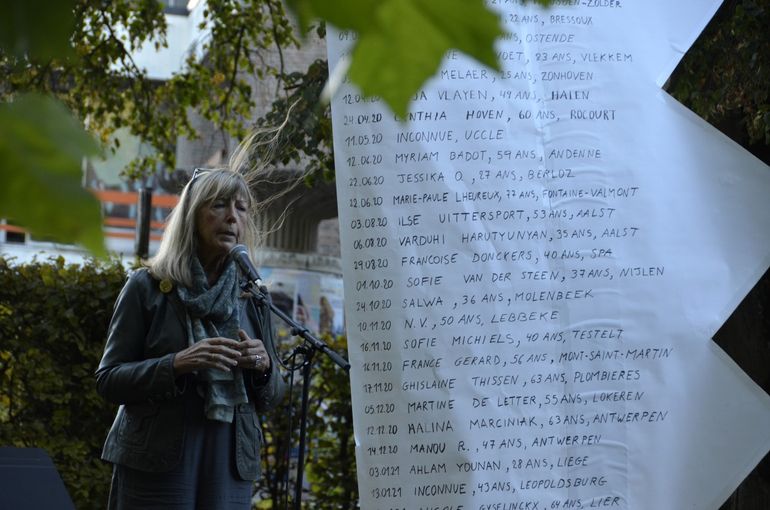 SDEN-ZOLDER
22 ANS, BRESSOUX
ANS, OSTENDE
OET, 23 ANS, VLEKKEM
MELAER, 25 ANS, ZONHOVEN
12.04.20 DA VLAYEN, 49 ANS, HALEN
24.04.20 CYNTHIA HOVEN, 60 ANS, ROCOURT
11.05.20 INCONNUE, UCCLE
12.06.20 MYRIAM BADOT, 59 ANS, ANDENNE
22.06.20 JESSIKA O., 27 ANS, BERLOZ
22.06.20 MARIE-PAULE LHEUREUX, 77 ANS, FONTAINE-VALMONT
03.08.20 ILSE UITTERSPORT, 53 ANS, AALST
06.08.20 VARDUHI HARUTYUNYAN, 35 ANS, AALST
29.08.20 FRANCOISE DONCKERS, 40 ANS, SPA
01.10.20 SOFIE VAN DER STEEN, 37 ANS, NIJLEN
24.10.20 SALWA, 36 ANS, MOLENBEEK
10.11.20 N.V., 50 ANS, LEBBEKE
16.11.20 SOFIE MICHIELS, 40 ANS, TESTELT
16.11.20 FRANCE GERARD, 56 ANS, MONT-SAINT-MARTIN
17.11.20 GHISLAINE THISSEN, 63 ANS, PLOMBIERES
05.12.20 MARTINE DE LETTER, 55 ANS, LOKEREN
12.12.20 HALINA MARCINIAK, 63 ANS, ANTWERPEN
14.12.20 MANOU R., 47 ANS, ANTWERPEN
03.01.21 AHLAM YOUNAN, 28 ANS, LIEGE
13.01.21 INCONNUE, 43 ANS, LEOPOLDSBURG
GYSELINCKX, 64 ANS, LIER